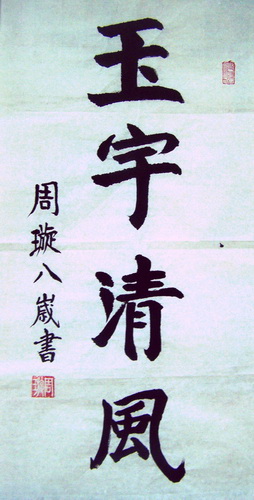 玉宇清風
周璇八歲書